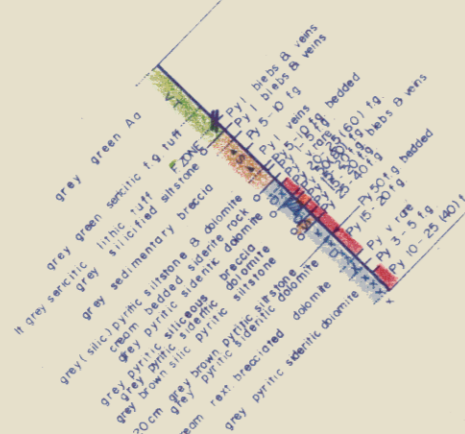 grey green Aa
grey green sericitic f.g. tuff
F. ZONE
lt grey sericitic lithic tuff
grey silicified siltstone
grey sedimentary breccia
grey (silic) pyritic siltstone & dolomite
cream bedded siderite rock
grey pyritic sideritic dolomite
grey pyritic siliceous breccia
grey pyritic sideritic dolomite
grey brown silic pyritic siltstone
20cm grey brown pyritic siltstone
grey pyritic sideritic dolomite
rext brecciated dolomite
grey pyritic sideritic dolomite
VT
Py 1 blebs & veins
Py 1 blebs & veins
Py 5-10 fg
Py 1 veins
5-10 fg bedded
rare
(60) fg
fg blebs & veins
Py 50 fg bedded
Py 15-20 fg
Py v rare
Py 3-5 fg
Py 10-25 (40) f